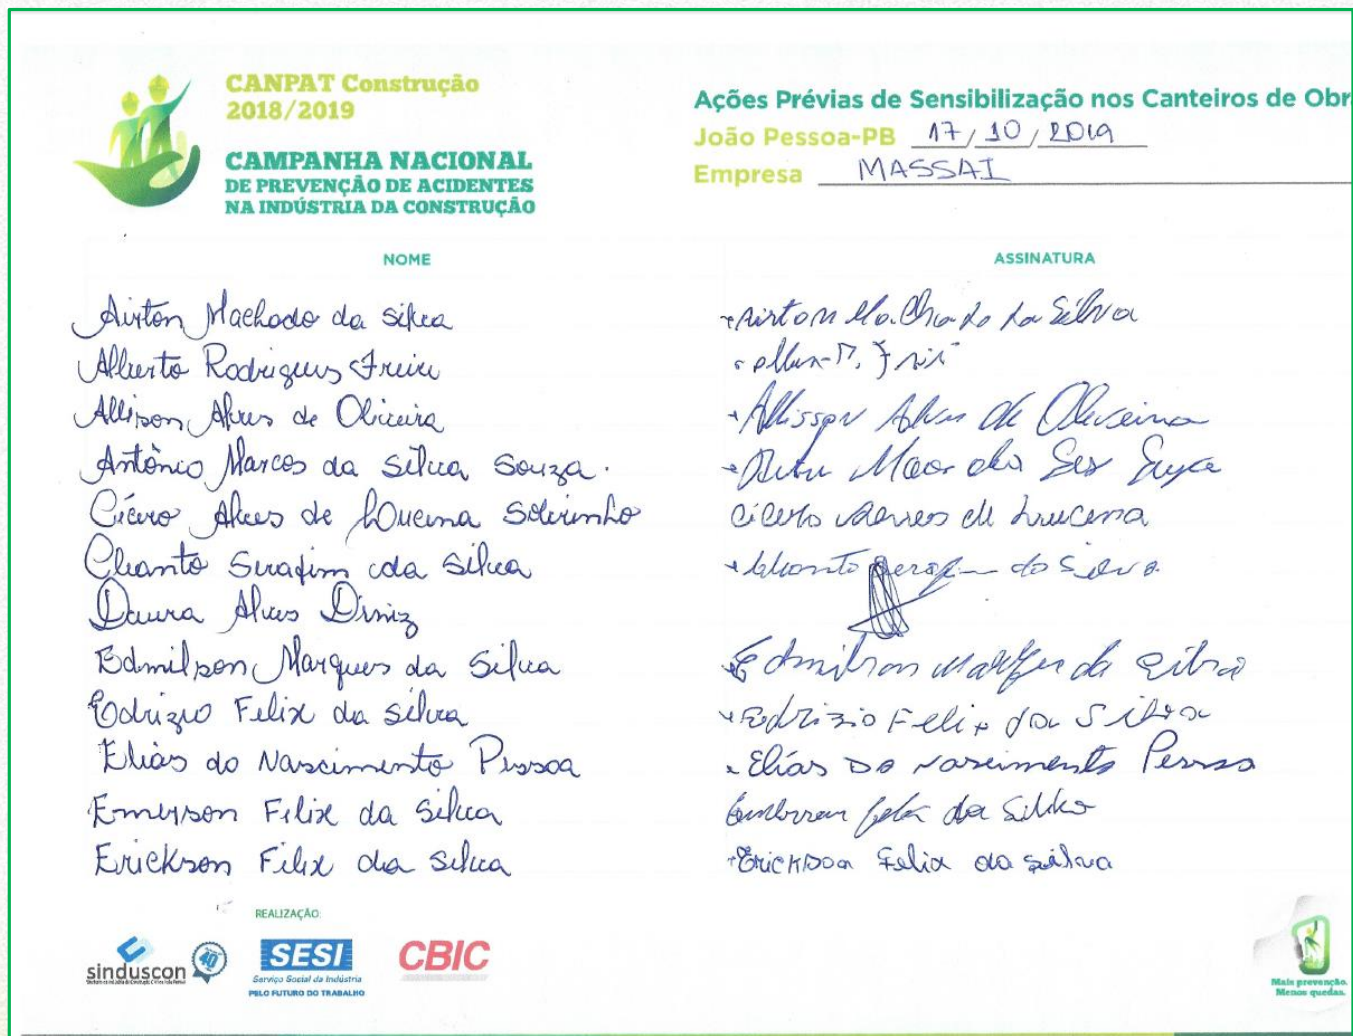 CANPAT Construção
2018/2019
CAMPANHA NACIONAL
DE PREVENÇÃO DE ACIDENTES
NA INDÚSTRIA DA CONSTRUÇÃO
Ações Prévias de Sensibilização nos Canteiros de Obr
João Pessoa-PB 17/10/2019
Empresa MASSAI
NOME
ASSINATURA
Airton Machado da Silva
Airton Machado da Silva
Alberto Rodrigues Freire
Allison Alves de Oliveira
Allisson Alves de Oliveira
Antônio Marcos da Silva Souza.
Cícero Alves de Lucena Sobrinho
Cicero Alves de Lucena
Cleanto Serafim da Silva
Cleanto Serafim da Silva
Daura Alves Diniz
Edmilson Marques da Silva
Edmilson Marques da Silva
Edrizio Felix da Silva
Edrizio Felix da Silva
Elias do Nascimento Pessoa
Elías Do Nascimento Pessoa
Emerson Felix da Silva
Emerson Felix da Silva
Erickson Felix da Silva
Erickson Felix da Silva
REALIZAÇÃO:
sinduscon
40
SESI
Serviço Social da Indústria
PELO FUTURO DO TRABALHO
CBIC
Mais prevenção.
Menos quedas.